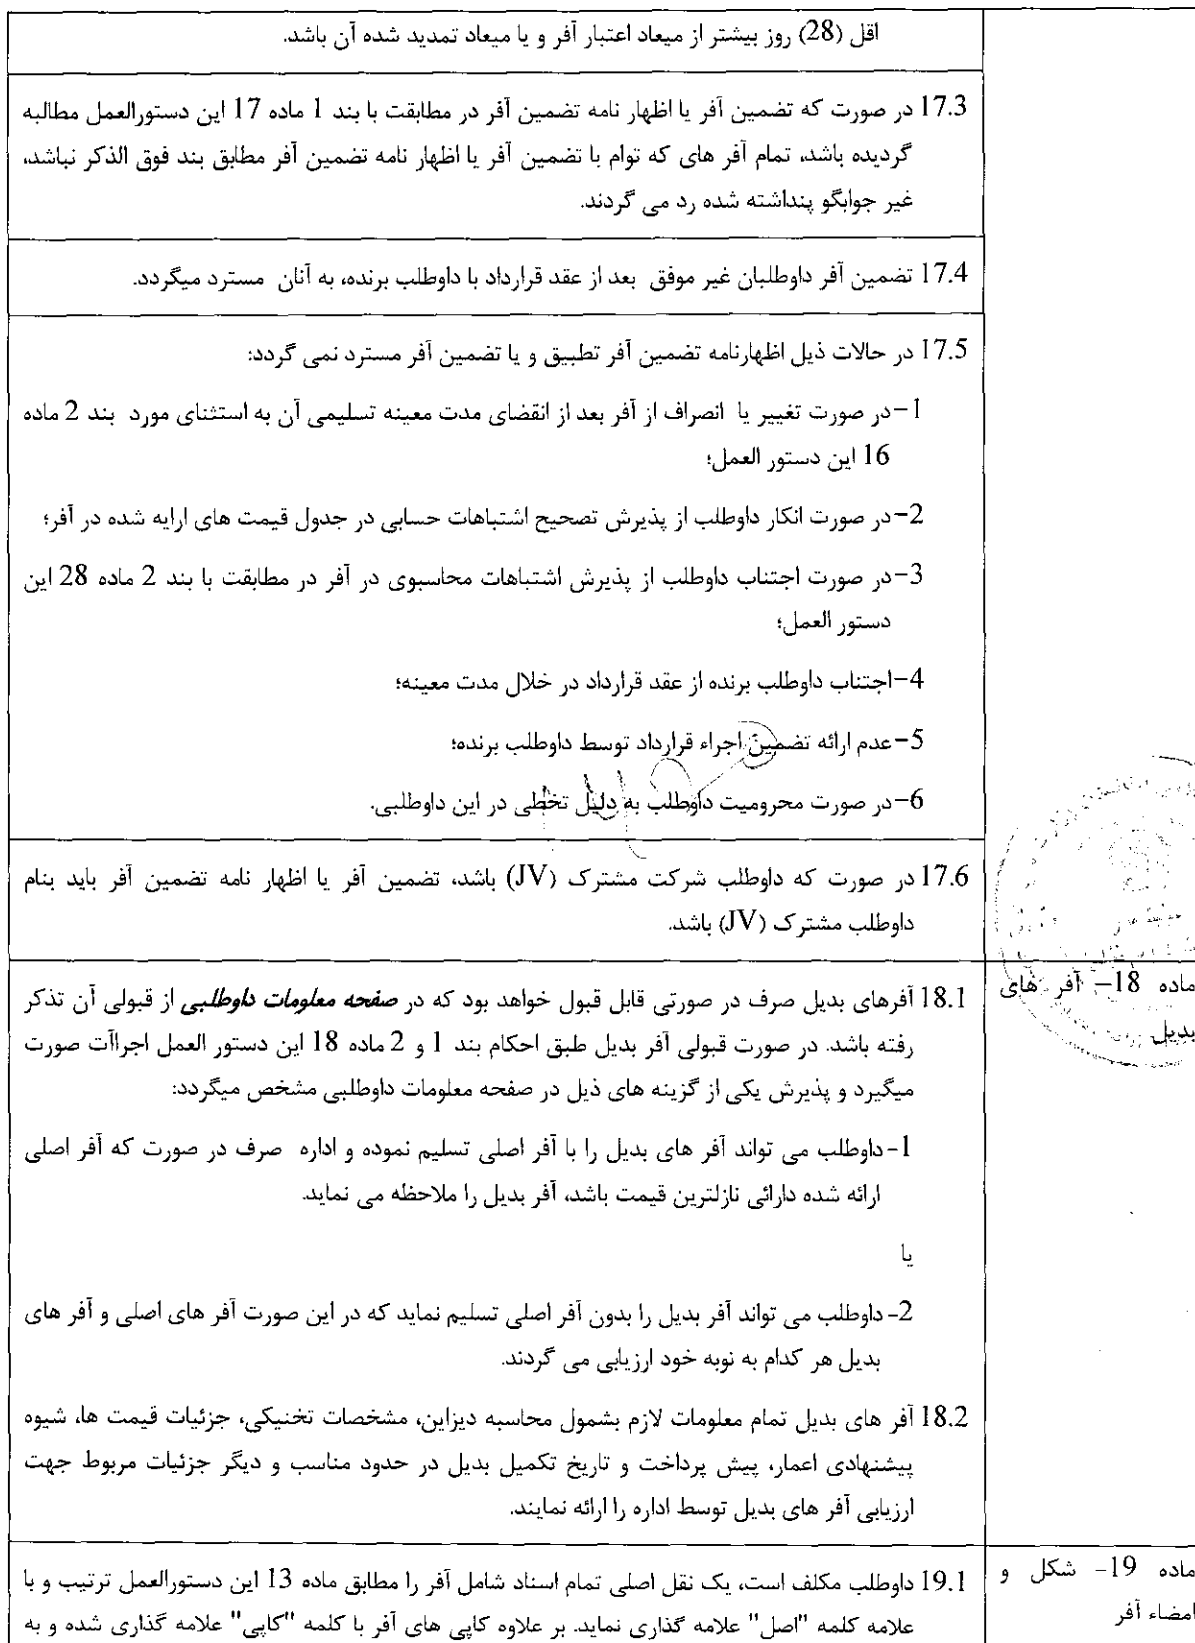 اقل (28) روز بیشتر از میعاد اعتبار آفر و یا میعاد تمدید شده آن باشد.
17.3 در صورت که تضمین آفر یا اظهار نامه تضمین آفر در مطابقت با بند 1 ماده 17 این دستورالعمل مطالبه
گردیده باشد، تمام آفر های که توام با تضمین آفر یا اظهار نامه تضمین آفر مطابق بند فوق الذکر نباشد،
غیر جوابگو پنداشته شده رد می گردند.
17.4 تضمین آفر داوطلبان غیر موفق بعد از عقد قرارداد با داوطلب برنده، به آنان مسترد میگردد.
17.5 در حالات ذیل اظهارنامه تضمین آفر تطبیق و یا تضمین آفر مسترد نمی گردد:
1-در صورت تغییر یا انصراف از آفر بعد از انقضای مدت معینه تسلیمی آن به استثنای مورد بند 2 ماده
16 این دستور العمل؛
2-در صورت انکار داوطلب از پذیرش تصحیح اشتباهات حسابی در جدول قیمت های ارایه شده در آفر؛
3-در صورت اجتناب داوطلب از پذیرش اشتباهات محاسبوی در آفر در مطابقت با بند 2 ماده 28 این
دستور العمل؛
4-اجتناب داوطلب برنده از عقد قرارداد در خلال مدت معینه؛
5-عدم ارائه تضمین اجراء قرارداد توسط داوطلب برنده؛
6-در صورت محرومیت داوطلب به دلیل تخطی در این داوطلبی.
17.6 در صورت که داوطلب شرکت مشترک (JV) باشد، تضمین آفر یا اظهار نامه تضمین آفر باید بنام
داوطلب مشترک (JV) باشد.
ماده 18- آفر های
بدیل
18.1 آفرهای بدیل صرف در صورتی قابل قبول خواهد بود که در صفحه معلومات داوطلبی از قبولی آن تذکر
رفته باشد. در صورت قبولی آفر بدیل طبق احکام بند 1 و 2 ماده 18 این دستور العمل اجراآت صورت
میگیرد و پذیرش یکی از گزینه های ذیل در صفحه معلومات داوطلبی مشخص میگردد:
1-داوطلب می تواند آفر های بدیل را با آفر اصلی تسلیم نموده و اداره صرف در صورت که آفر اصلی
ارائه شده دارائی نازلترین قیمت باشد، آفر بدیل را ملاحظه می نماید.
یا
2-داوطلب می تواند آفر بدیل را بدون آفر اصلی تسلیم نماید که در این صورت آفر های اصلی و آفر های
بدیل هر کدام به نوبه خود ارزیابی می گردند.
18.2 آفر های بدیل تمام معلومات لازم بشمول محاسبه دیزاین، مشخصات تخنیکی، جزئیات قیمت ها، شیوه
پیشنهادی اعمار، پیش پرداخت و تاریخ تکمیل بدیل در حدود مناسب و دیگر جزئیات مربوط جهت
ارزیابی آفر های بدیل توسط اداره را ارائه نمایند.
ماده 19- شکل و
امضاء آفر
19.1 داوطلب مکلف است، یک نقل اصلی تمام اسناد شامل آفر را مطابق ماده 13 این دستورالعمل ترتیب و با
علامه کلمه "اصل" علامه گذاری نماید. بر علاوه کاپی های آفر با کلمه "کاپی" علامه گذاری شده و به